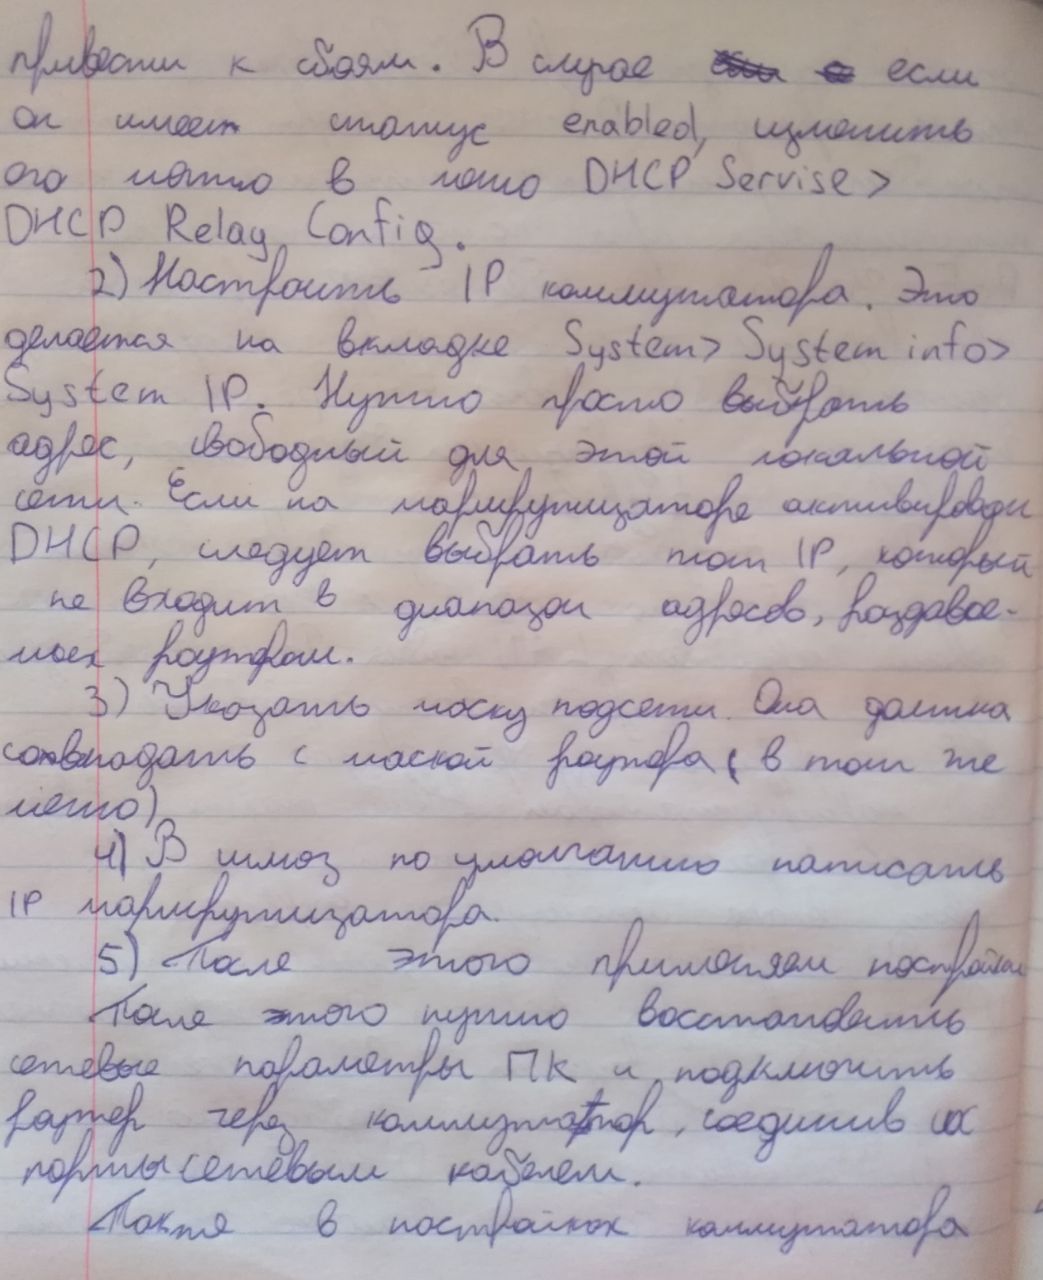 привести к сбоям. В случае если
он имеет статус enabled, изменить
его можно в меню DHCP Servise>
DHCP Relay Config.
2) Настроить IP коммутатора. Это
делается на вкладке System> System info>
System IP. Нужно просто выбрать
адрес, свободный для этой локальной
сети. Если на маршрутизаторе активирован
DHCP, следует выбрать тот IP, который
не входит в диапазон адресов, раздавае-
мых роутером.
3) Указать маску подсети. Она должна
совпадать с маской роутера (в том же
меню)
4) В шлюз по умолчанию написать
IP маршрутизатора.
5) После этого применяем настройки
После этого нужно восстановить
сетевые параметры ПК и подключить
роутер через коммутатор, соединив их
порты сетевым кабелем.
Также в настройках коммутатора